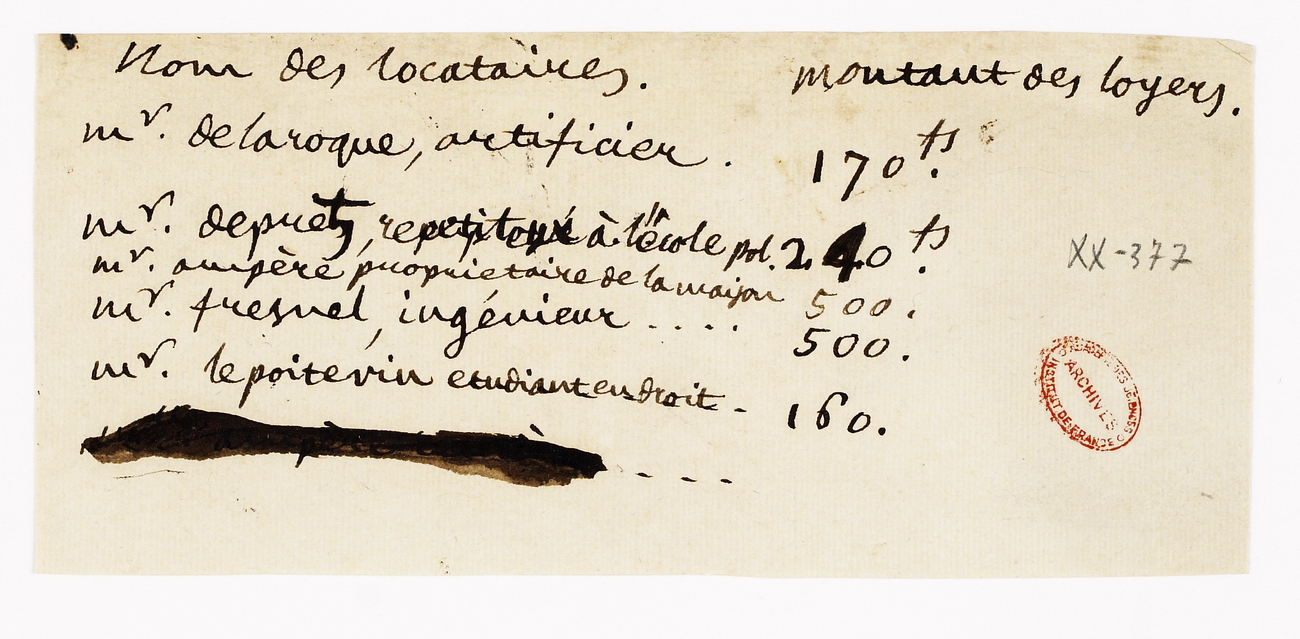 Nom des locataires. montant des loyers.
mr. delaroque, artificier. 170 ts.
mr. depretz, repetiteur à l'école pol. 240 ts.
mr. ampère proprietaire de la maison 500.
mr. fresnel, ingénieur .... 500.
mr. lepoitevin etudiant en droit - 160.
XX-377
ARCHIVES